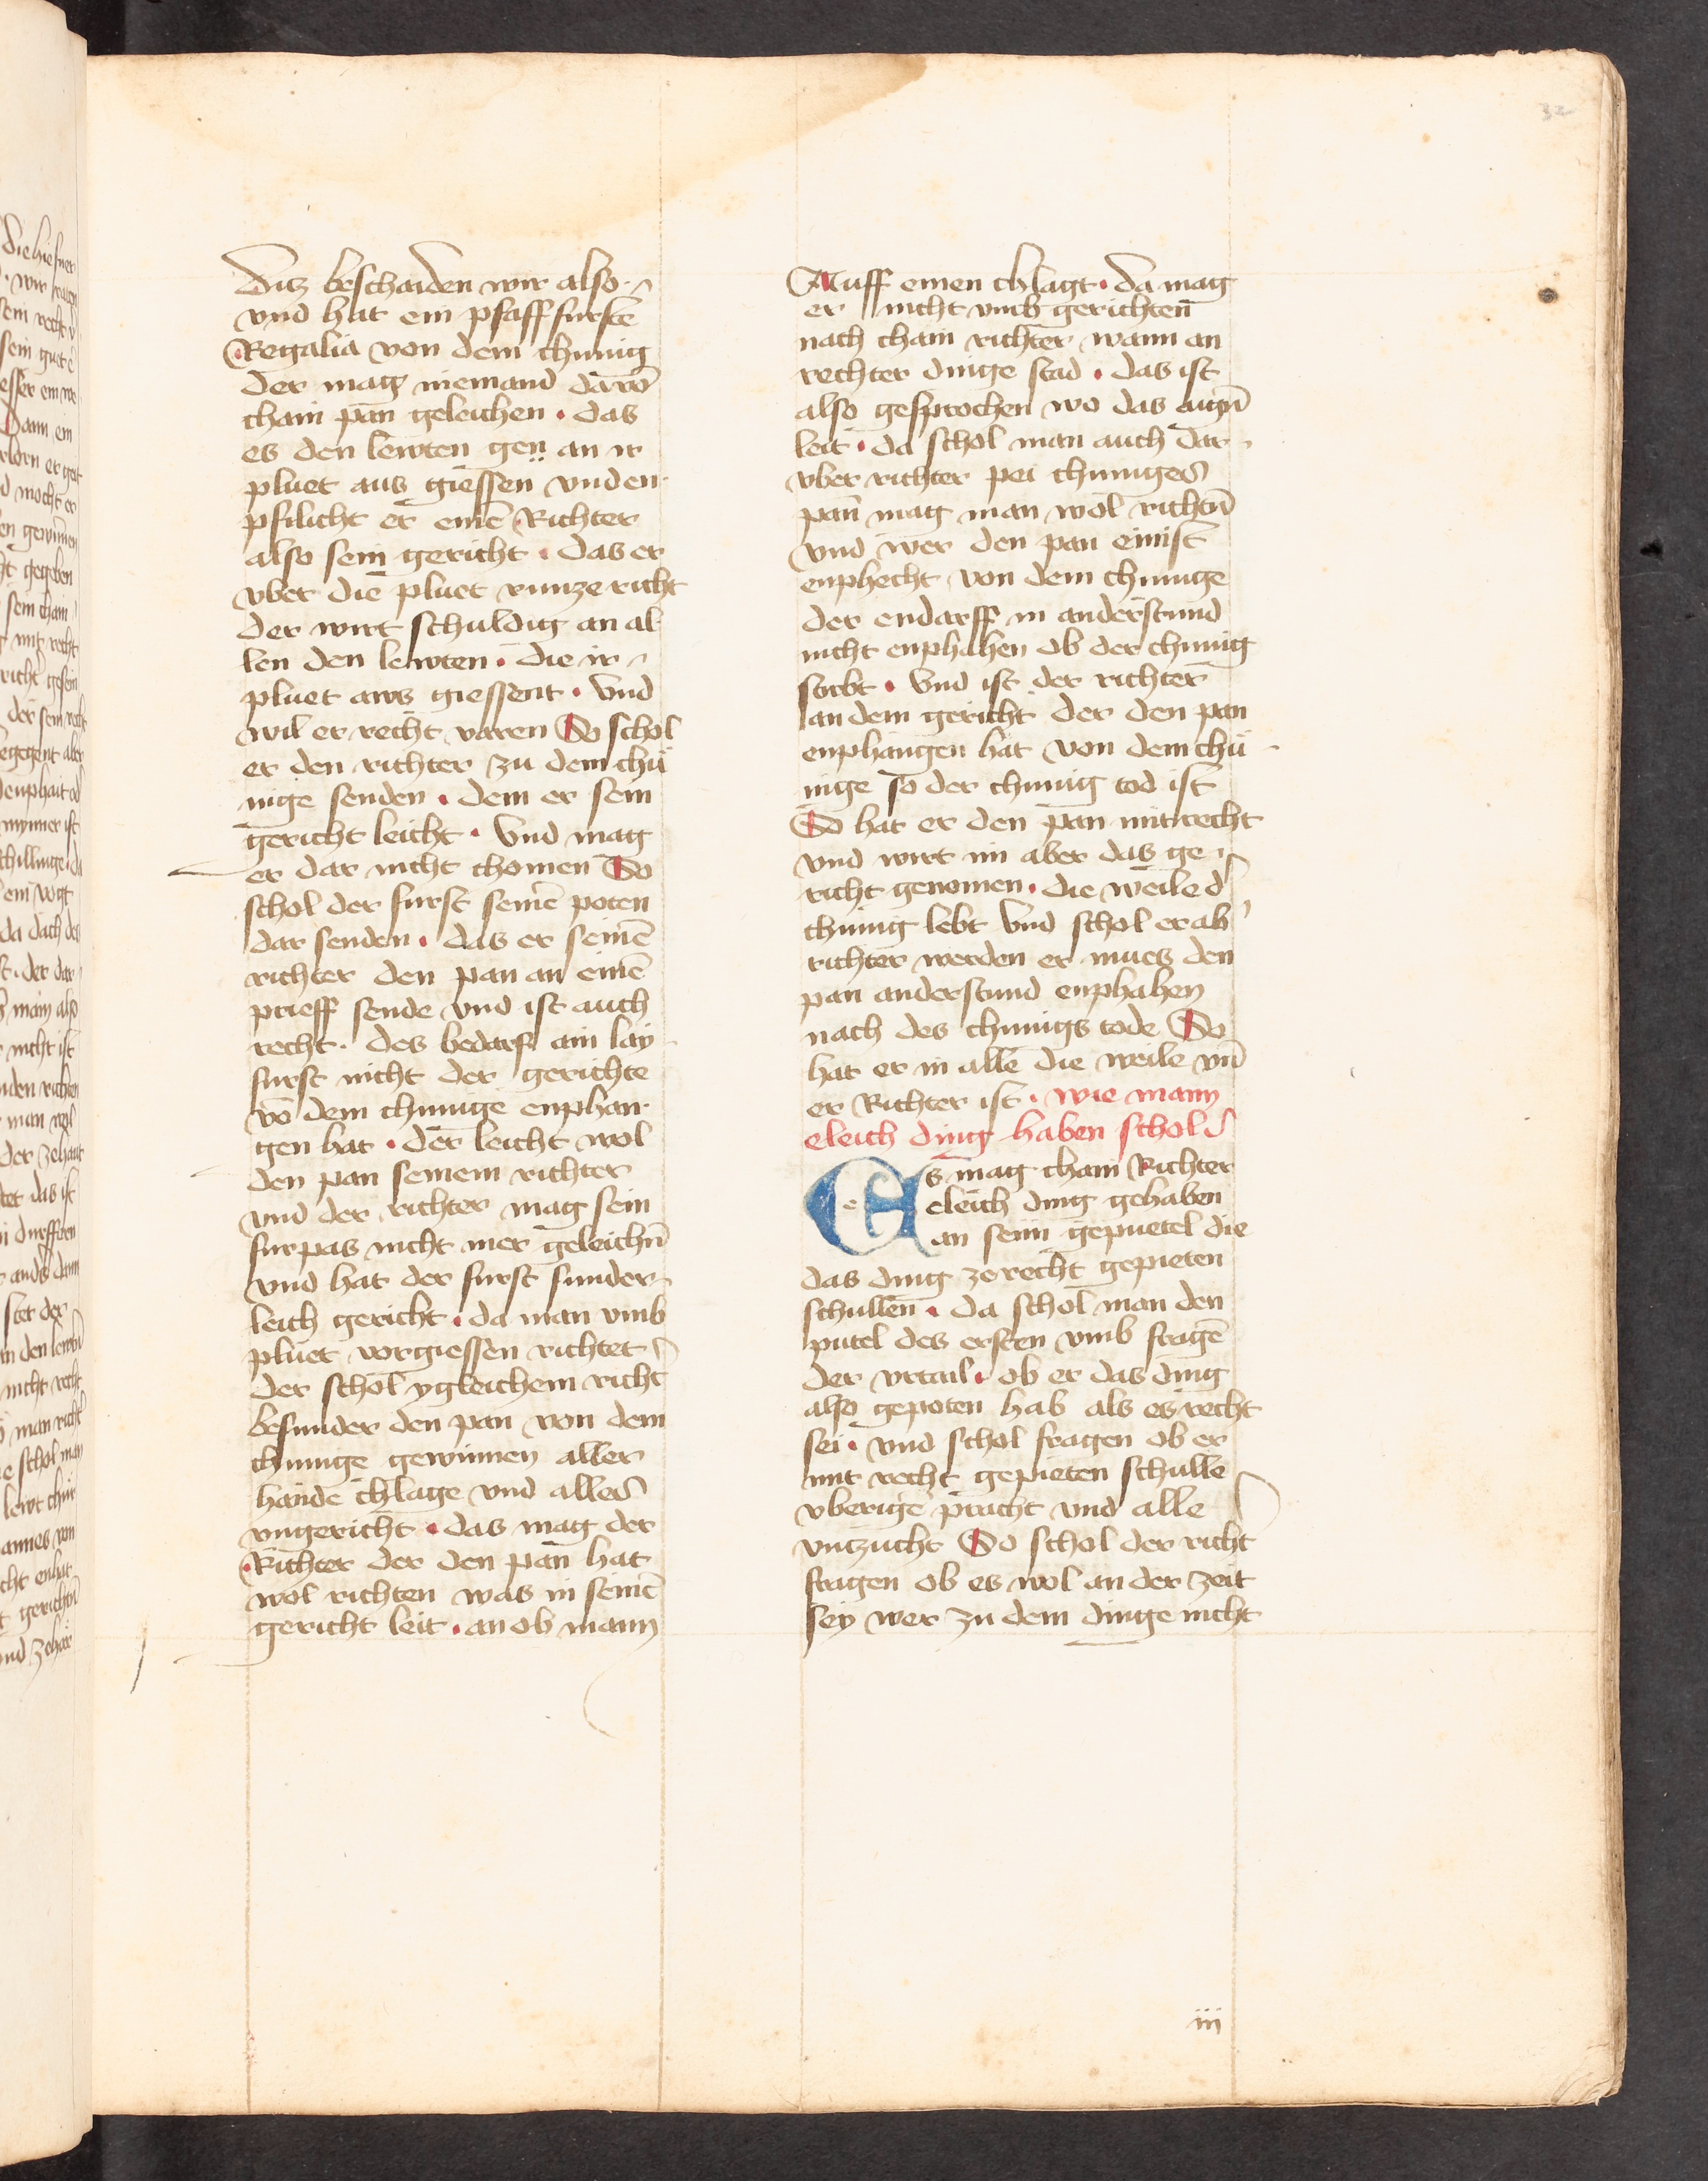 32
Ditz beschaiden wir also
vnd hat ein pfaff furstē
Regalia von dem chunig
der mag niemand darō
chain pan geleichen . das
es den lewten gen an ir
pluet aus giessen vnd en
pfilicht er einē Richter
also sein gericht . das er
vber die pluet runze richt
der wirt schuldig an al
len den lewten . die ir
pluet aws giessent . vnd
wil er recht varen So schol
er den richter zu dem chü
nige senden . dem er sein
gericht leicht . vnd mag
er dar nicht chomen So
schol der furst seinē poten
dar senden . das er seinē
richter den pan an einē
prieff sende vnd ist auch
recht . des bedarf ain lay
furst nicht der gerichte
vō dem chunige enphan
gen hat . der leicht wol
den pan seinem richter
vnd der richter mag sein
furpas nicht mer geleichn̄
vnd hat der furst sunder
leich gericht . da man vmb
pluet vorgiessen richtet
der schol ygleichem richt
besunder den pan von dem
chunige gewinnen aller
hande chlage vnd alles
vngericht . das mag der
Richter der den pan hat
wol richten was in seinē
gericht leit . an ob mann
Auff einen chlagt . da mag
er nicht vmb gerichten
nach chain richter wann an
rechter dinge stad . das ist
also gesprochen wo das aign̄
leit . da schol man auch dar
vber richter pei chuniges
pan mag man wol richtn̄
vnd wer den pan einist
enphecht von dem chunige
der endarff in anderstund
nicht enphahen ob der chunig
stirbt . vnd ist der richter
an dem gericht der den pan
enphangen hat von dem chü
nige so der chunig tod ist
So hat er den pan mit recht
vnd wirt im aber das ge
richt genomen . die weile d'
chunig lebt vnd schol er ab'
richter werden er mues den
pan anderstund enphahen
nach des chunigs tode So
hat er in alle die weile vn̄
er Richter ist . wie mann
eleich ding haben schol
Es mag chain Richter
eleich ding gehaben
an sein gepuetel die
das ding ze recht gepieten
schullen . da schol man den
putel des ersten vmb fragē
der vrtail . ob er das ding
also gepoten hab als es recht
sei . vnd schol fragen ob er
mit recht gepieten schulle
vberige pracht vnd alle
vntzucht So schol der richt
fragen ob es wol an der zeit
sey wer zu dem dinge nicht
iij